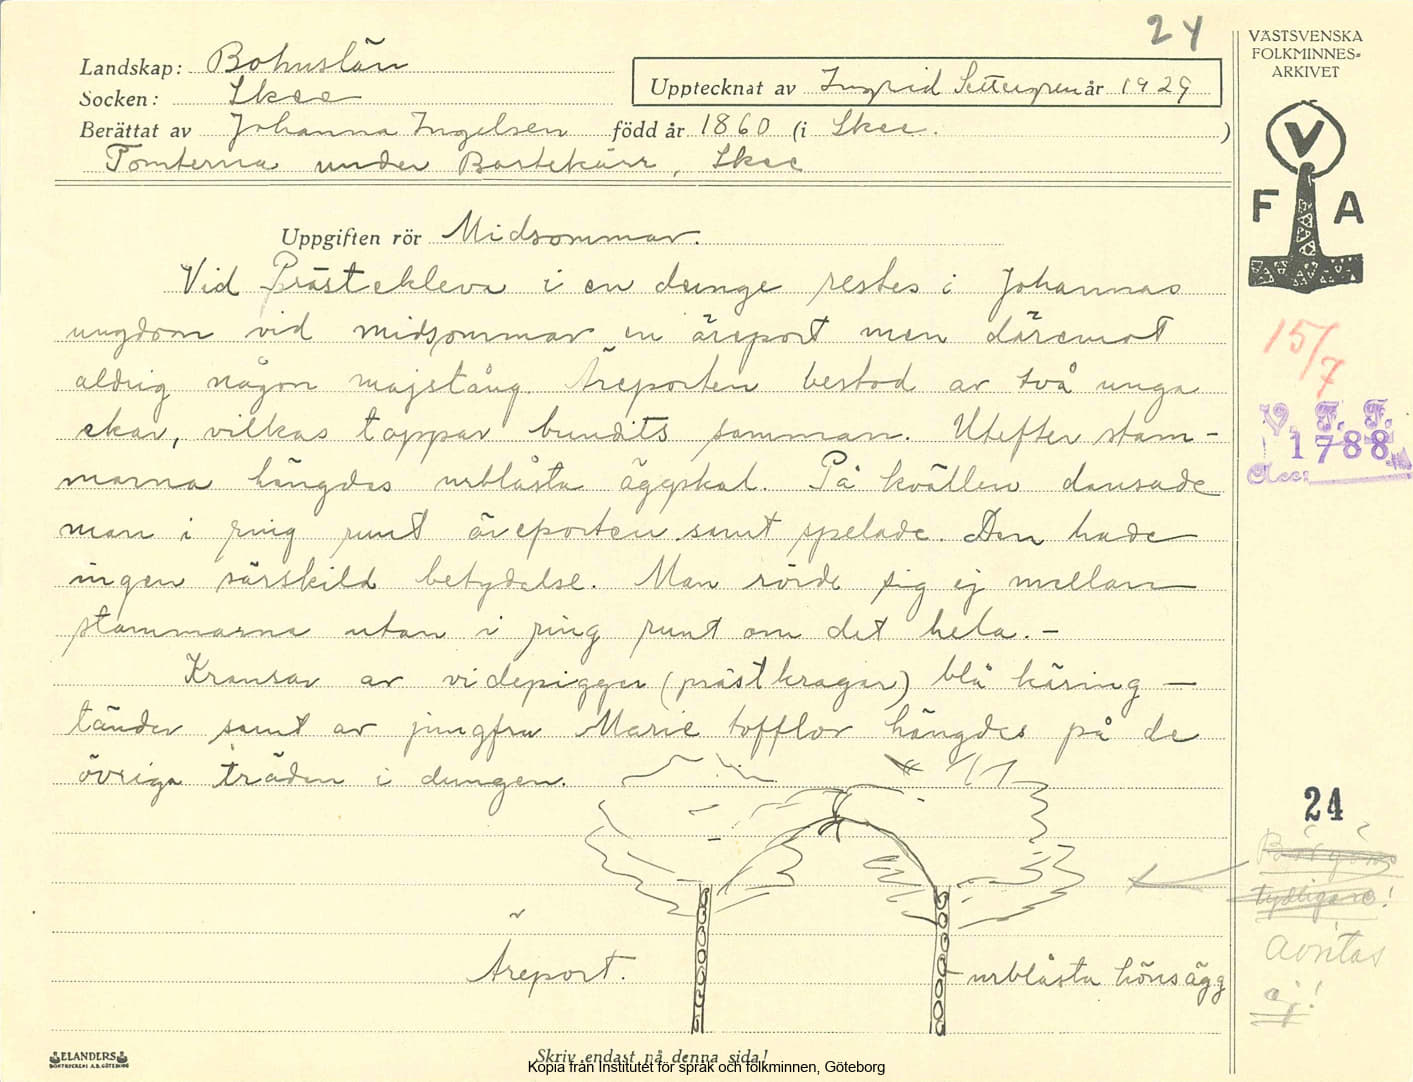 24
Landskap: Bohuslän
Socken: Skee
Upptecknat av Ingrid Settergren år 1929
Berättat av Johanna Ingelsen född år 1860 (i Skee. )
Tomterna under Bastekärr, Skee
Uppgiften rör Midsommar.
Vid Prästekleva i en dunge restes i Johannas
ungdom vid midsommar en äreport men däremot
aldrig någon majstång. Äreporten bestod av två unga
ekar, vilkas toppar bundits samman. Utefter stam-
marna hängdes urblåsta äggskal. På kvällen dansade
man i ring runt äreporten samt spelade. Den hade
ingen särskild betydelse. Man rörde sig ej mellan
stammarna utan i ring runt om det hela. –
Kransar av videpiggar (prästkragar) blå käring –
tänder samt av jungfru Marie tofflor hängdes på de
övriga träden i dungen.
Äreport.
urblåsta hönsägg
Skriv endast på denna sida!
ELANDERS
BOKTRYCKERI A.B. GÖTEBORG
VÄSTSVENSKA
FOLKMINNES-
ARKIVET
V
F A
15/7
V. F. F.
1788
Acc:
24
Bör göras
tydligare!
avritas
ej!
Kopia från Institutet för språk och folkminnen, Göteborg